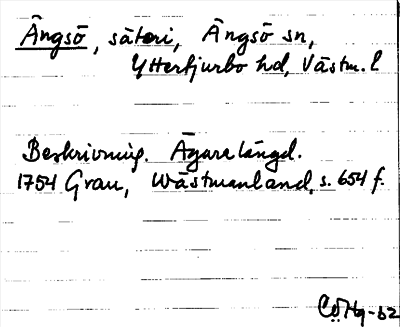 Ängsö, säteri, Ängsö sn,
Yttertjurbo hd, Västm. l
Beskrivning. Ägarelängd.
1754 Grau, Wästmanland, s. 654 f.
CÖHg-62